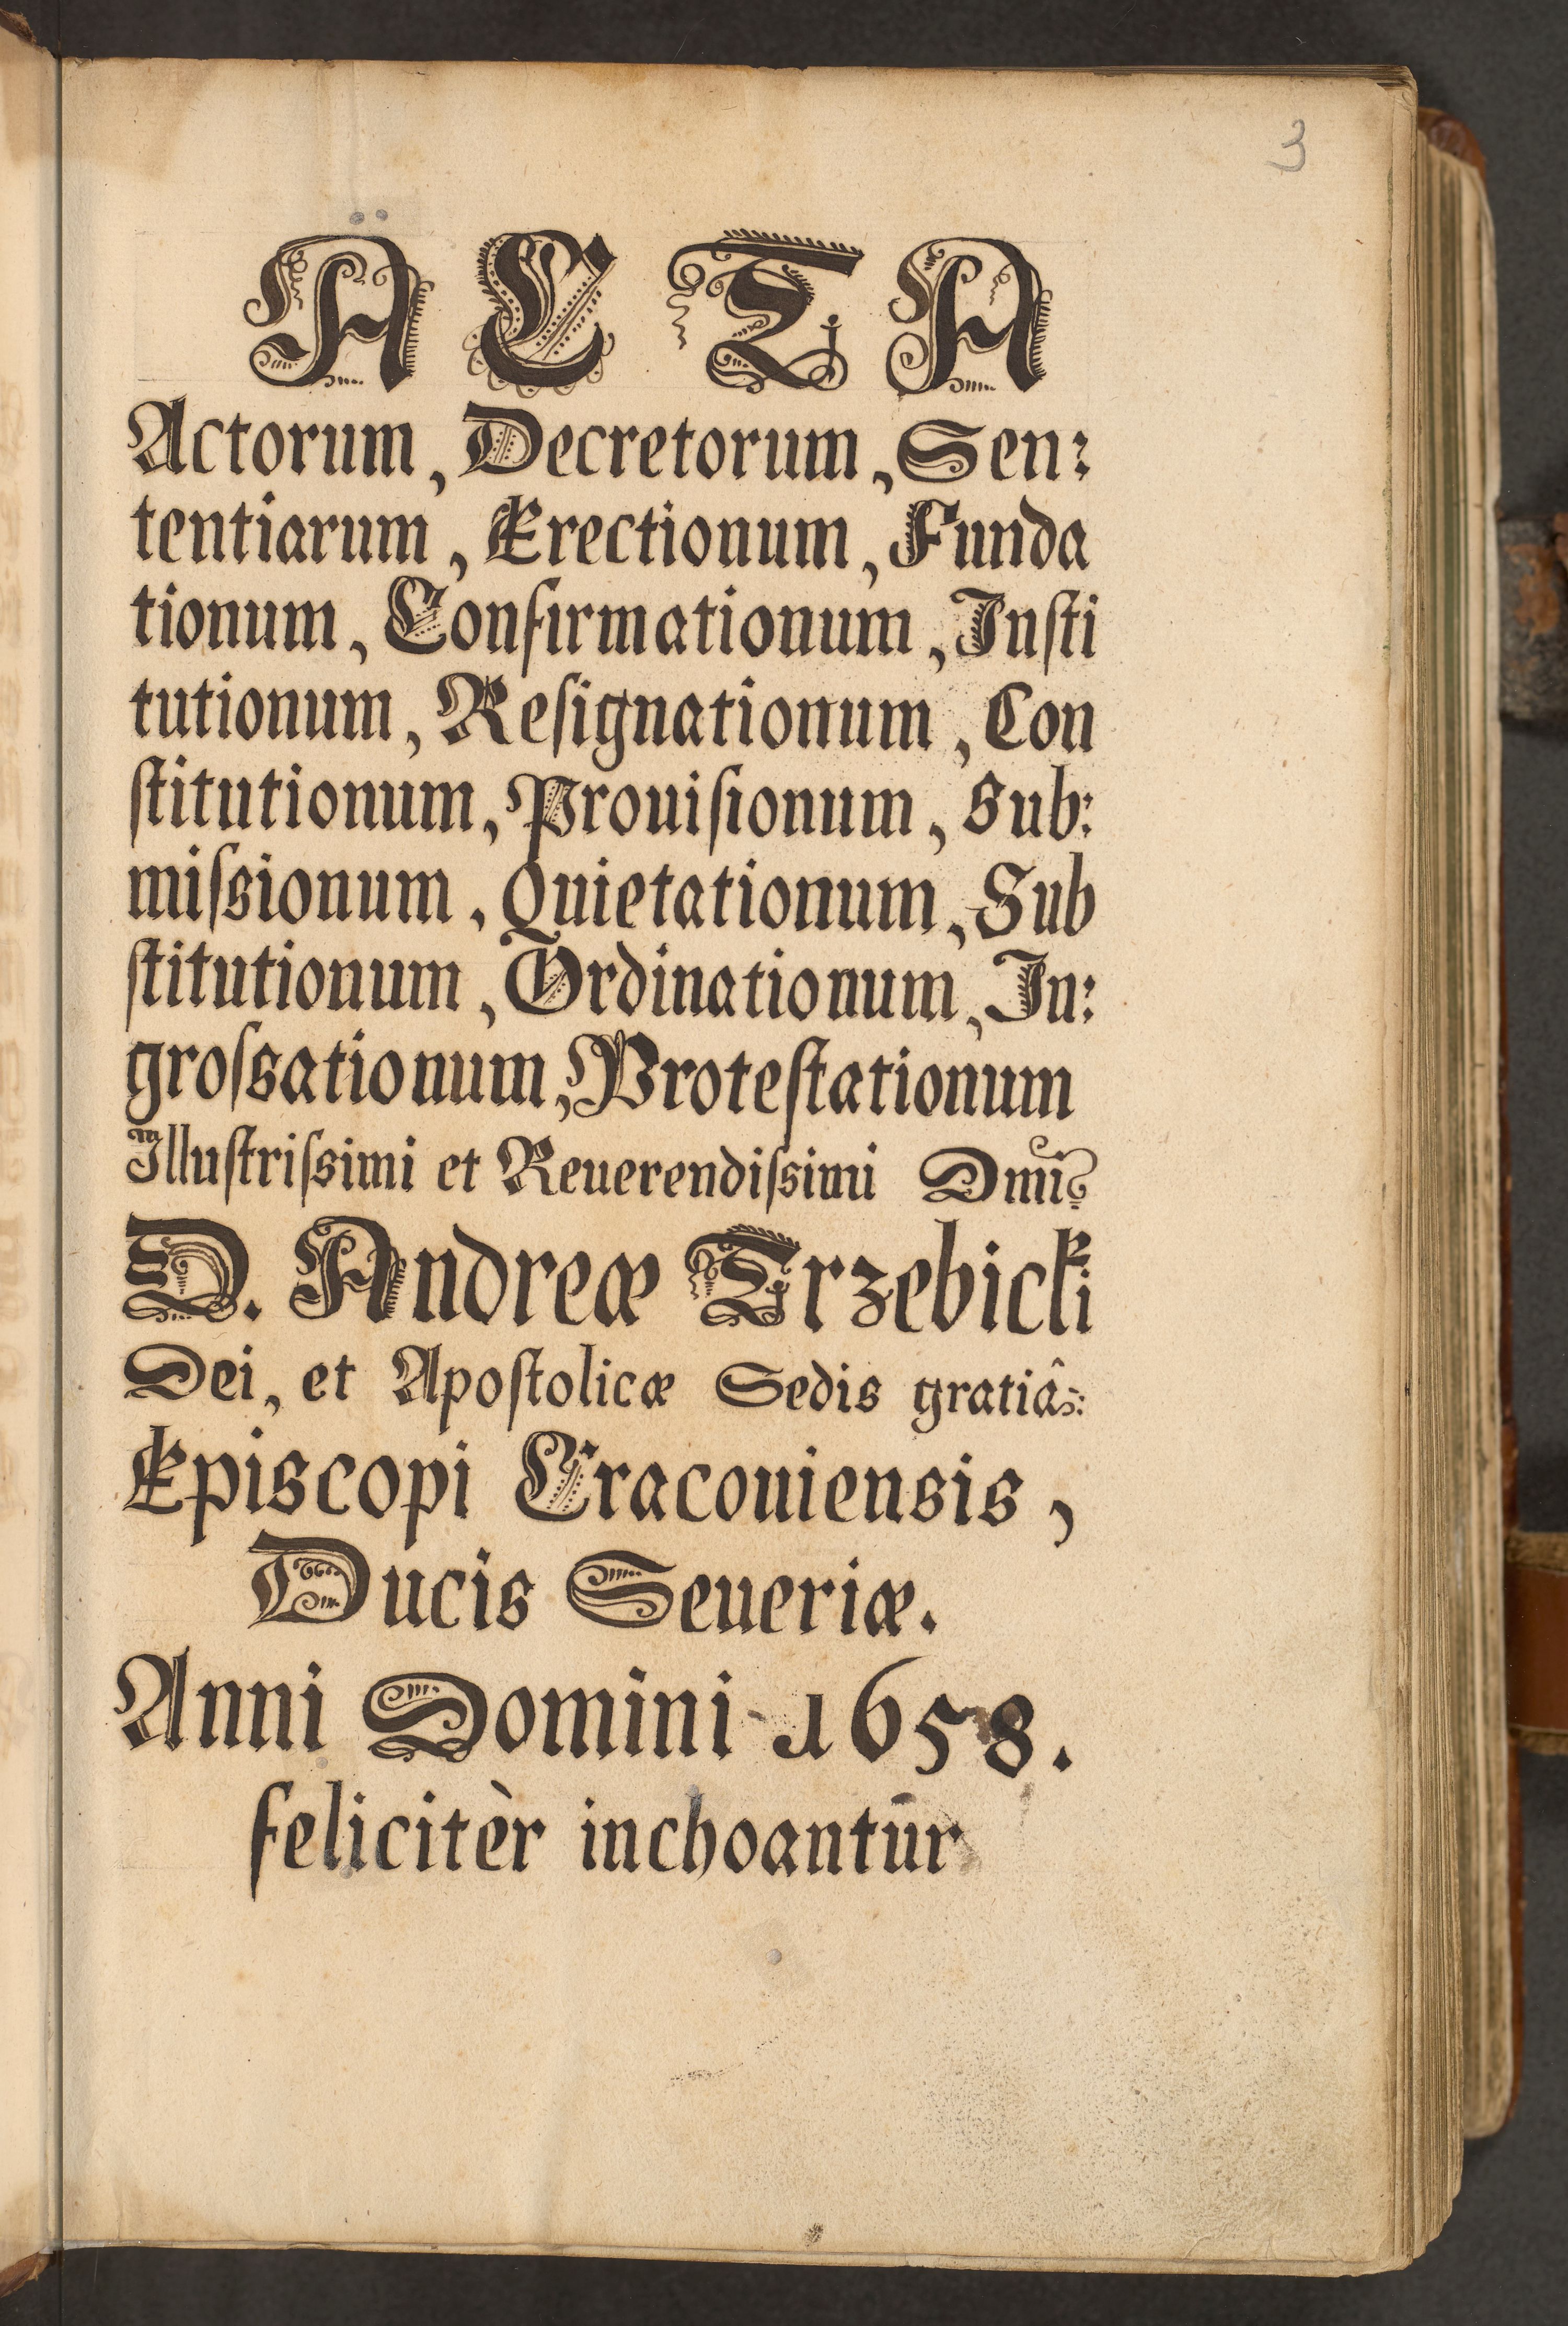 3
ACTA
Actorum, Decretorum, Sen:
tentiarum, Erectionum, Funda
tionum, Confirmationum, Insti
tutionum, Resignationum, Con
stitutionum, Prouisionum, Sub:
missionum, Quietationum, Sub
stitutionum, Ordinationum, In:
grossationum, Protestationum
Illustrissimi et Reuerendissimi Dmi
D. Andreæ Trzebicki
Dei, et Apostolicæ Sedis gratiâ:
Episcopi Cracouiensis,
Ducis Seueriæ.
Anni Domini 1658.
felicitèr inchoantur